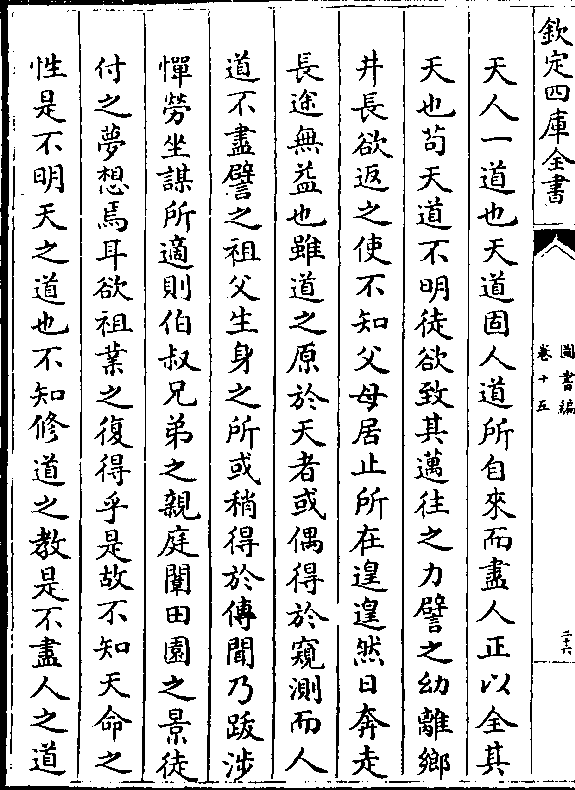 欽定四庫全書
圖書編
卷十五
二十六
天人一道也天道固人道所自來而盡人正以全其
天也苟天道不明徒欲致其邁往之力譬之幼離鄉
井長欲返之使不知父母居止所在遑遑然日奔走
長途無益也雖道之原於天者或偶得於窺測而人
道不盡譬之祖父生身之所或稍得於傳聞乃跋涉
憚勞坐謀所適則伯叔兄弟之親庭闈田園之景徒
付之夢想焉耳欲祖業之復得乎是故不知天命之
性是不明天之道也不知修道之教是不盡人之道